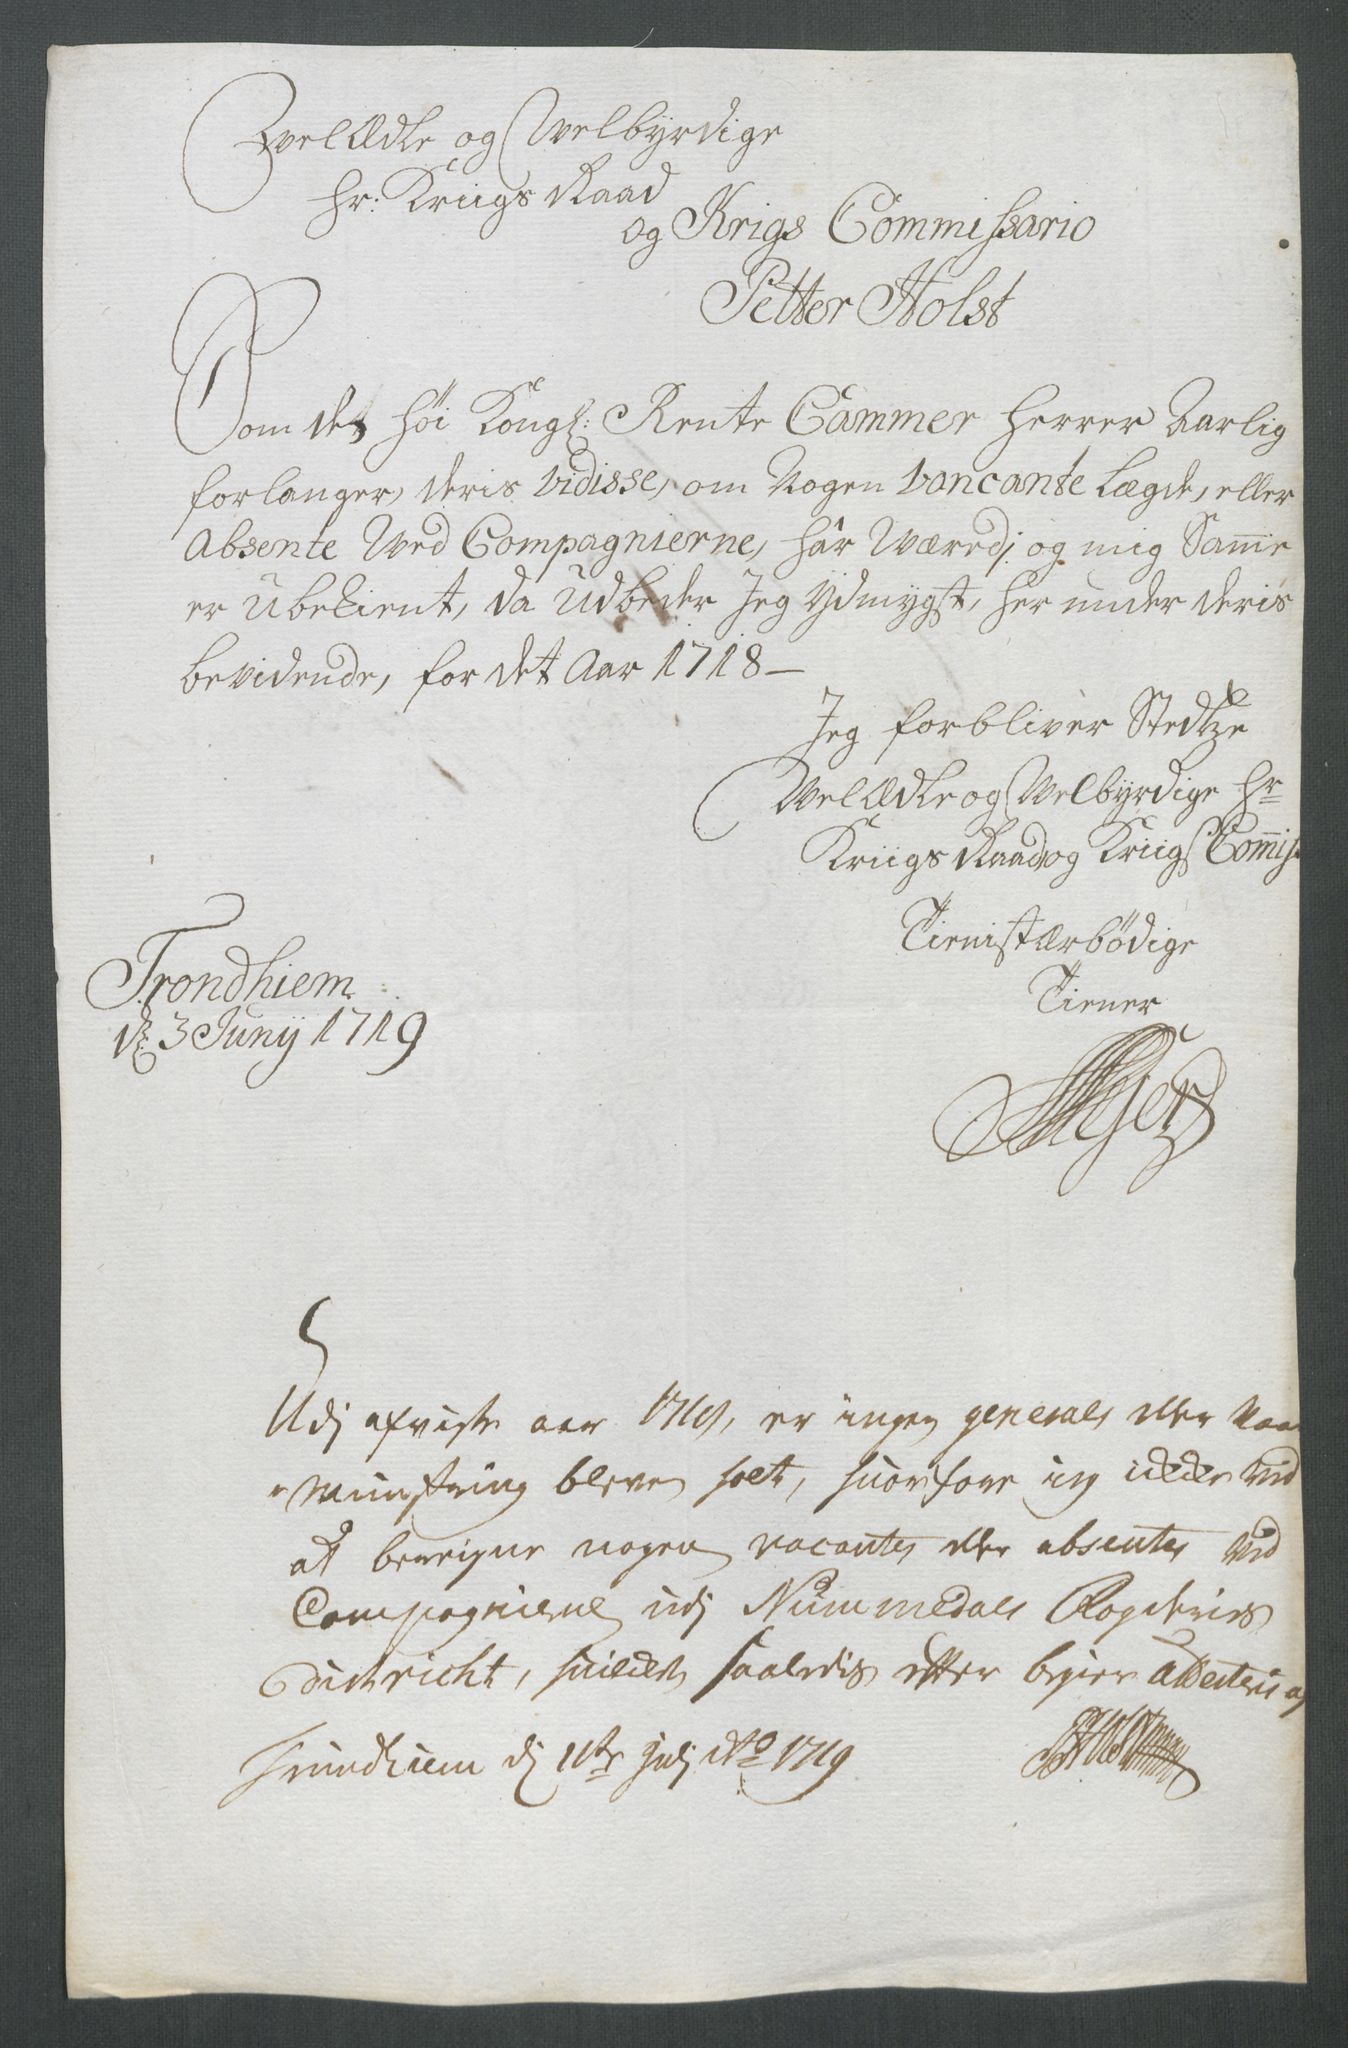 Welædle og Welbyrdige
Hr: Kriigs Raad
og Krigs Commissario
Petter Holst
Som det höi Kongl: Rente Cammer Herrer Aarlig
forlanger, deris vidisse, om Nogen vancante Lægde, eller
Absente Wed Compagnierne, hår Wæred, og mig Samme
er Ubekient, da Udbeder Jeg Ydmygst, her under deris
bevidende, for det Aar 1718 —
Jeg forbliver Stedtze
Welædle og Welbyrdige Hr
Kriigs Raad og Kriigs Commis
Tienistærbödige
Tiener
Trondhiem
d: 3 Junij 1719
Udj afvigte aar 1718, er ingen generals eller
Munstring bleven holt, huorfore ieg icke Ved
at beregne nogen vacante eller absente ved
Compagnierne udj Nummedals Fogderies
District, huilcket saaledis efter begier Attesteris af
Trundhiem dj 11te Julj Ao 1719